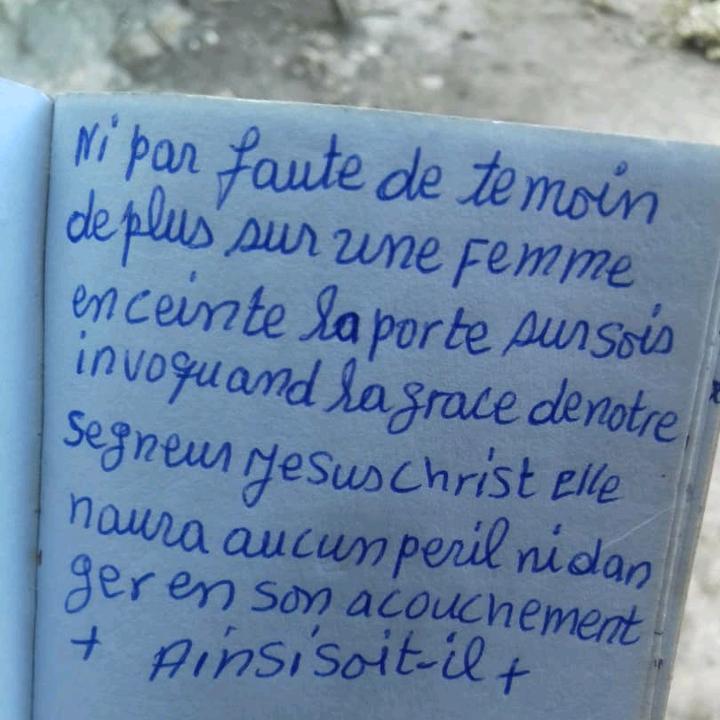 Ni par faute de temoin
de plus sur une Femme
enceinte la porte sur sois
invoquand la grace de notre
segneur Jesus Christ elle
naura aucun peril ni dan
ger en son acouchement
+ Ainsi soit-il +